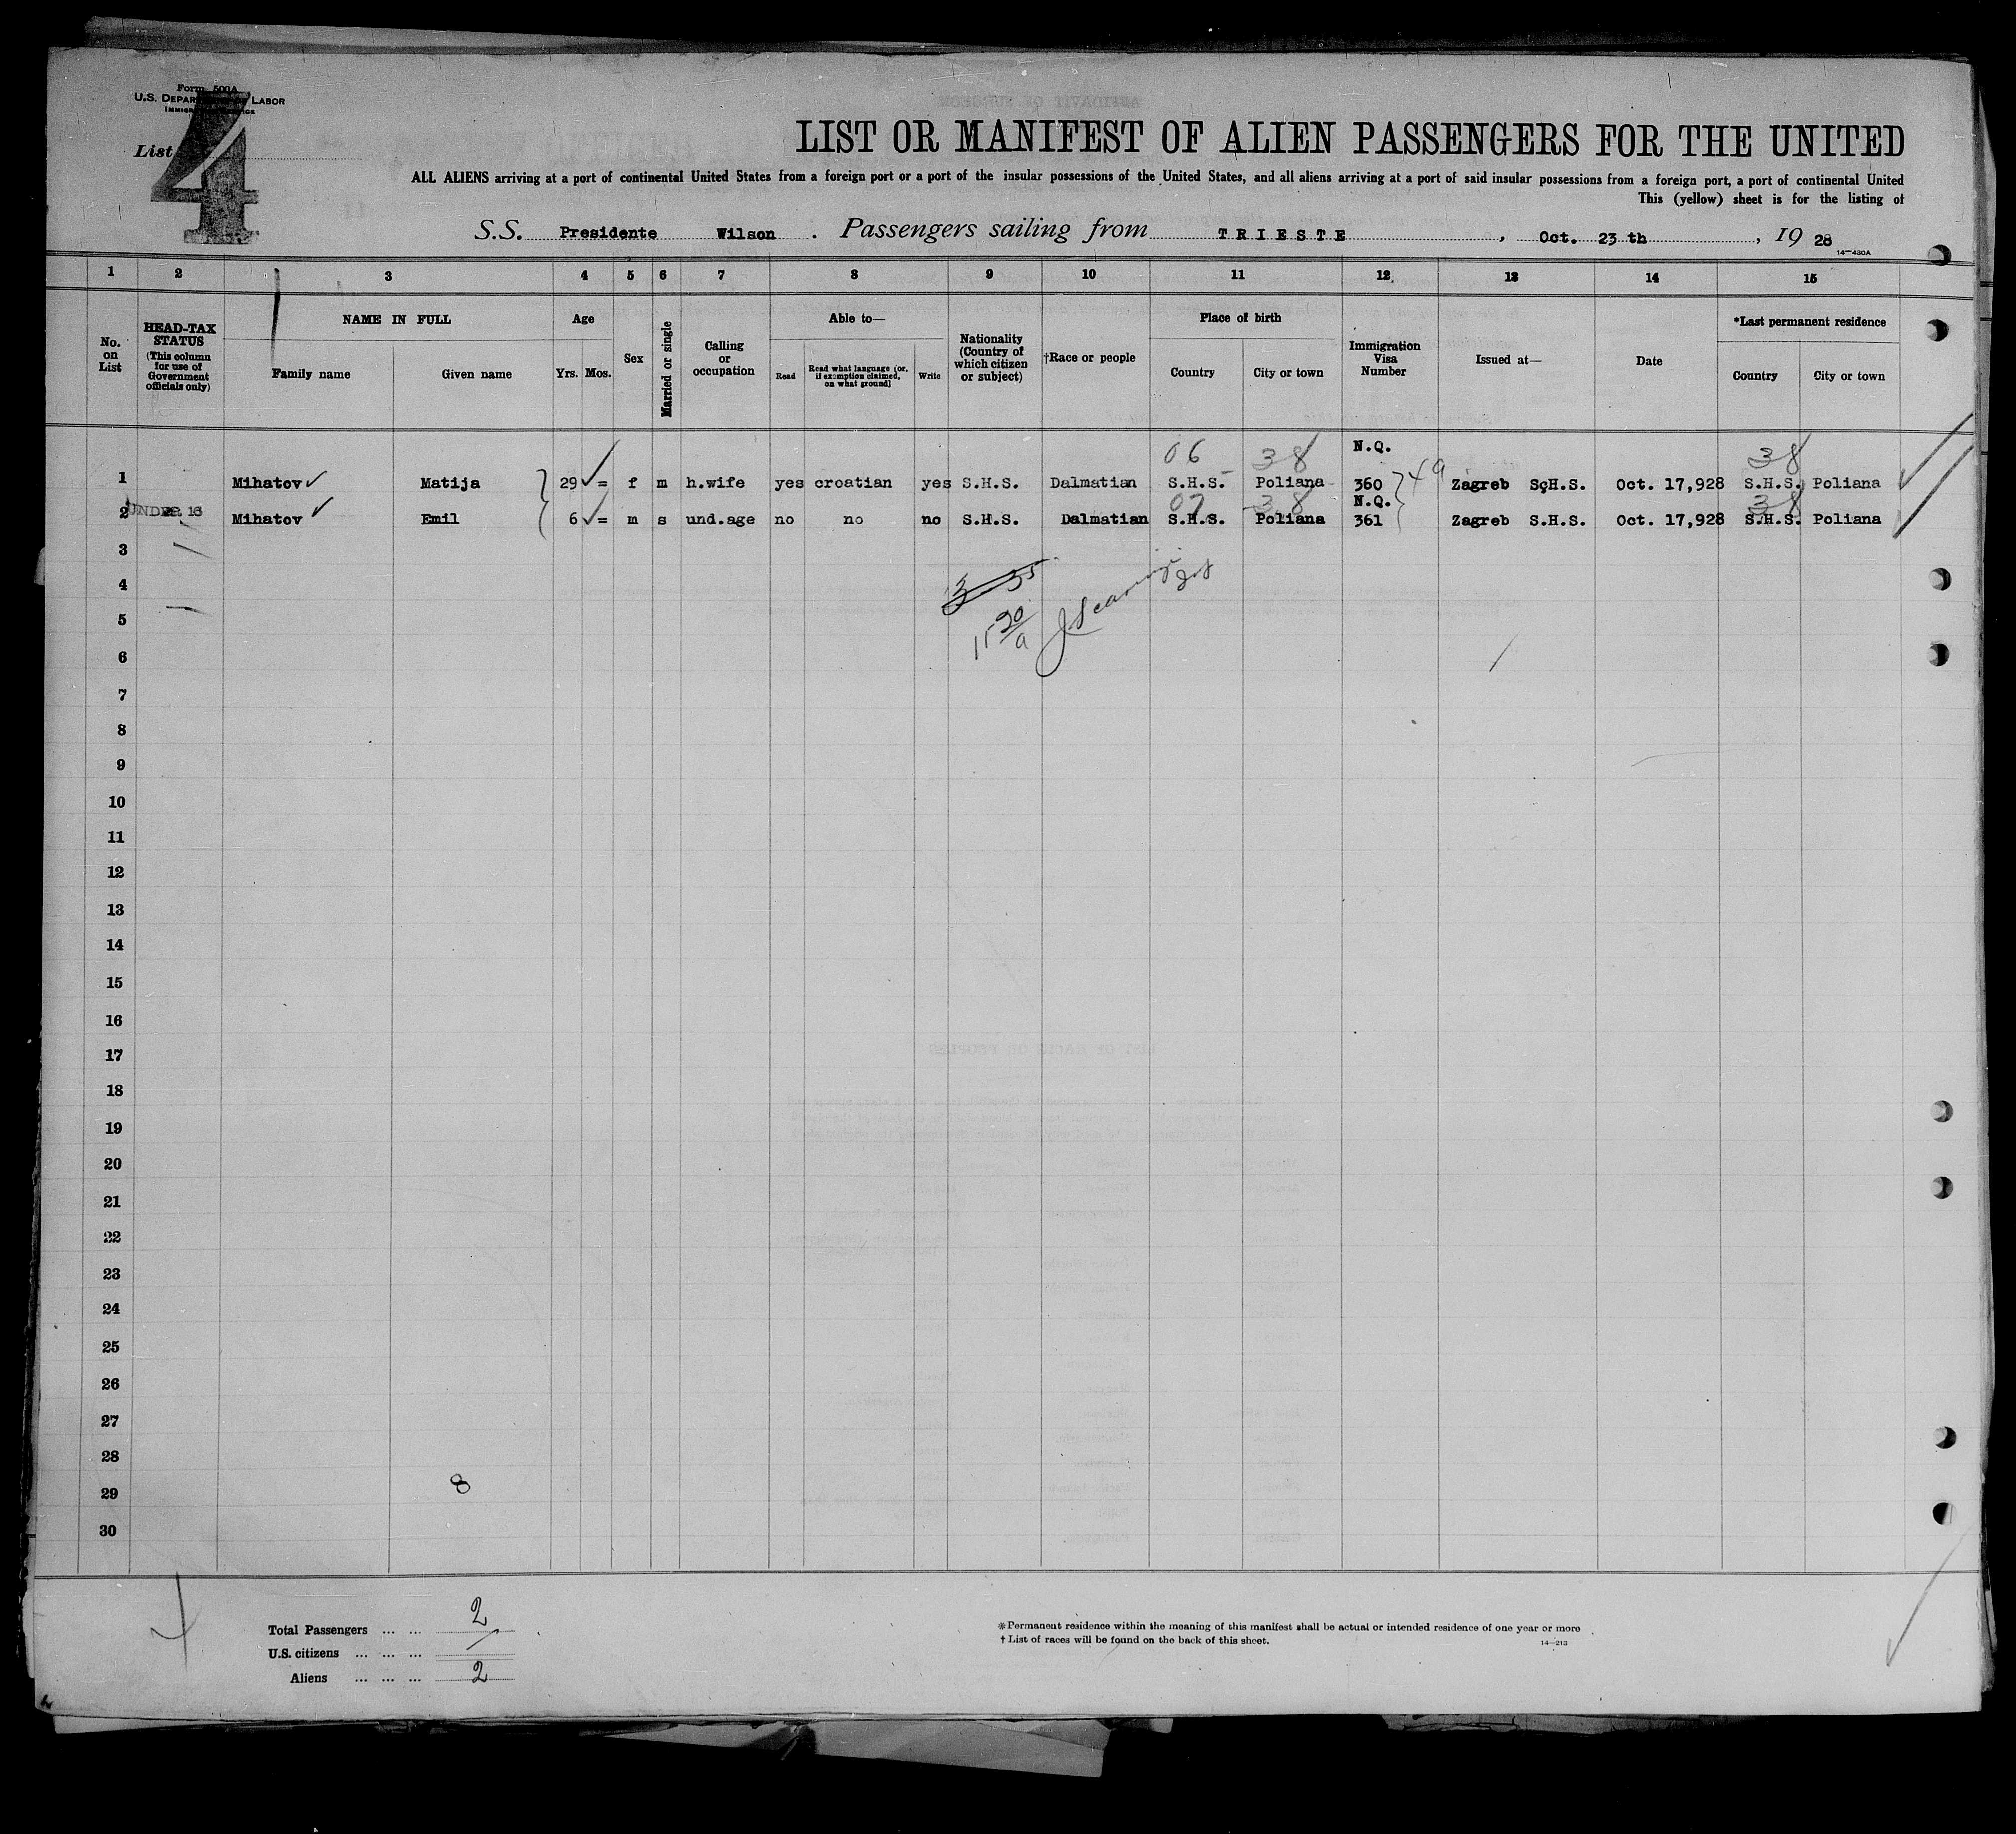 Form 500A
U.S. DEPARTMENT OF LABOR
IMMIGRATION SERVICE
List 4
LIST OR MANIFEST OF ALIEN PASSENGERS FOR THE UNITED
ALL ALIENS arriving at a port of continental United States from a foreign port or a port of the insular possessions of the United States, and all aliens arriving at a port of said insular possessions from a foreign port, a port of continental United
This (yellow) sheet is for the listing of
S.S. Presidente Wilson . Passengers sailing from TRIESTE , Oct. 23 th , 19 28
14—430A
1 2 3 4 5 6 7 8 9 10 11 12 13 14 15
No. on List
HEAD-TAX STATUS (This column for use of Government officials only)
NAME IN FULL
Family name Given name
Age
Yrs. Mos.
Sex
Married or single
Calling or occupation
Able to—
Read Read what language (or, if exemption claimed, on what ground) Write
Nationality (Country of which citizen or subject)
†Race or people
Place of birth
Country City or town
Immigration Visa Number
Issued at—
Date
*Last permanent residence
Country City or town
06 38 N.Q. 38
1 Mihatov Matija 29 = f m h.wife yes croatian yes S.H.S. Dalmatian S.H.S. Poliana 360 4a Zagreb SçH.S. Oct. 17,928 S.H.S. Poliana
07 38 N.Q. 38
2 UNDER 16 Mihatov Emil 6 = m s und.age no no no S.H.S. Dalmatian S.H.S. Poliana 361 Zagreb S.H.S. Oct. 17,928 S.H.S. Poliana
3
4
5
6
7
8
9
10
11
12
13
14
15
16
17
18
19
20
21
22
23
24
25
26
27
28
8
29
30
Total Passengers ... ... 2
U.S. citizens ... ... ... /
Aliens ... ... ... 2
*Permanent residence within the meaning of this manifest shall be actual or intended residence of one year or more
† List of races will be found on the back of this sheet.
14—213